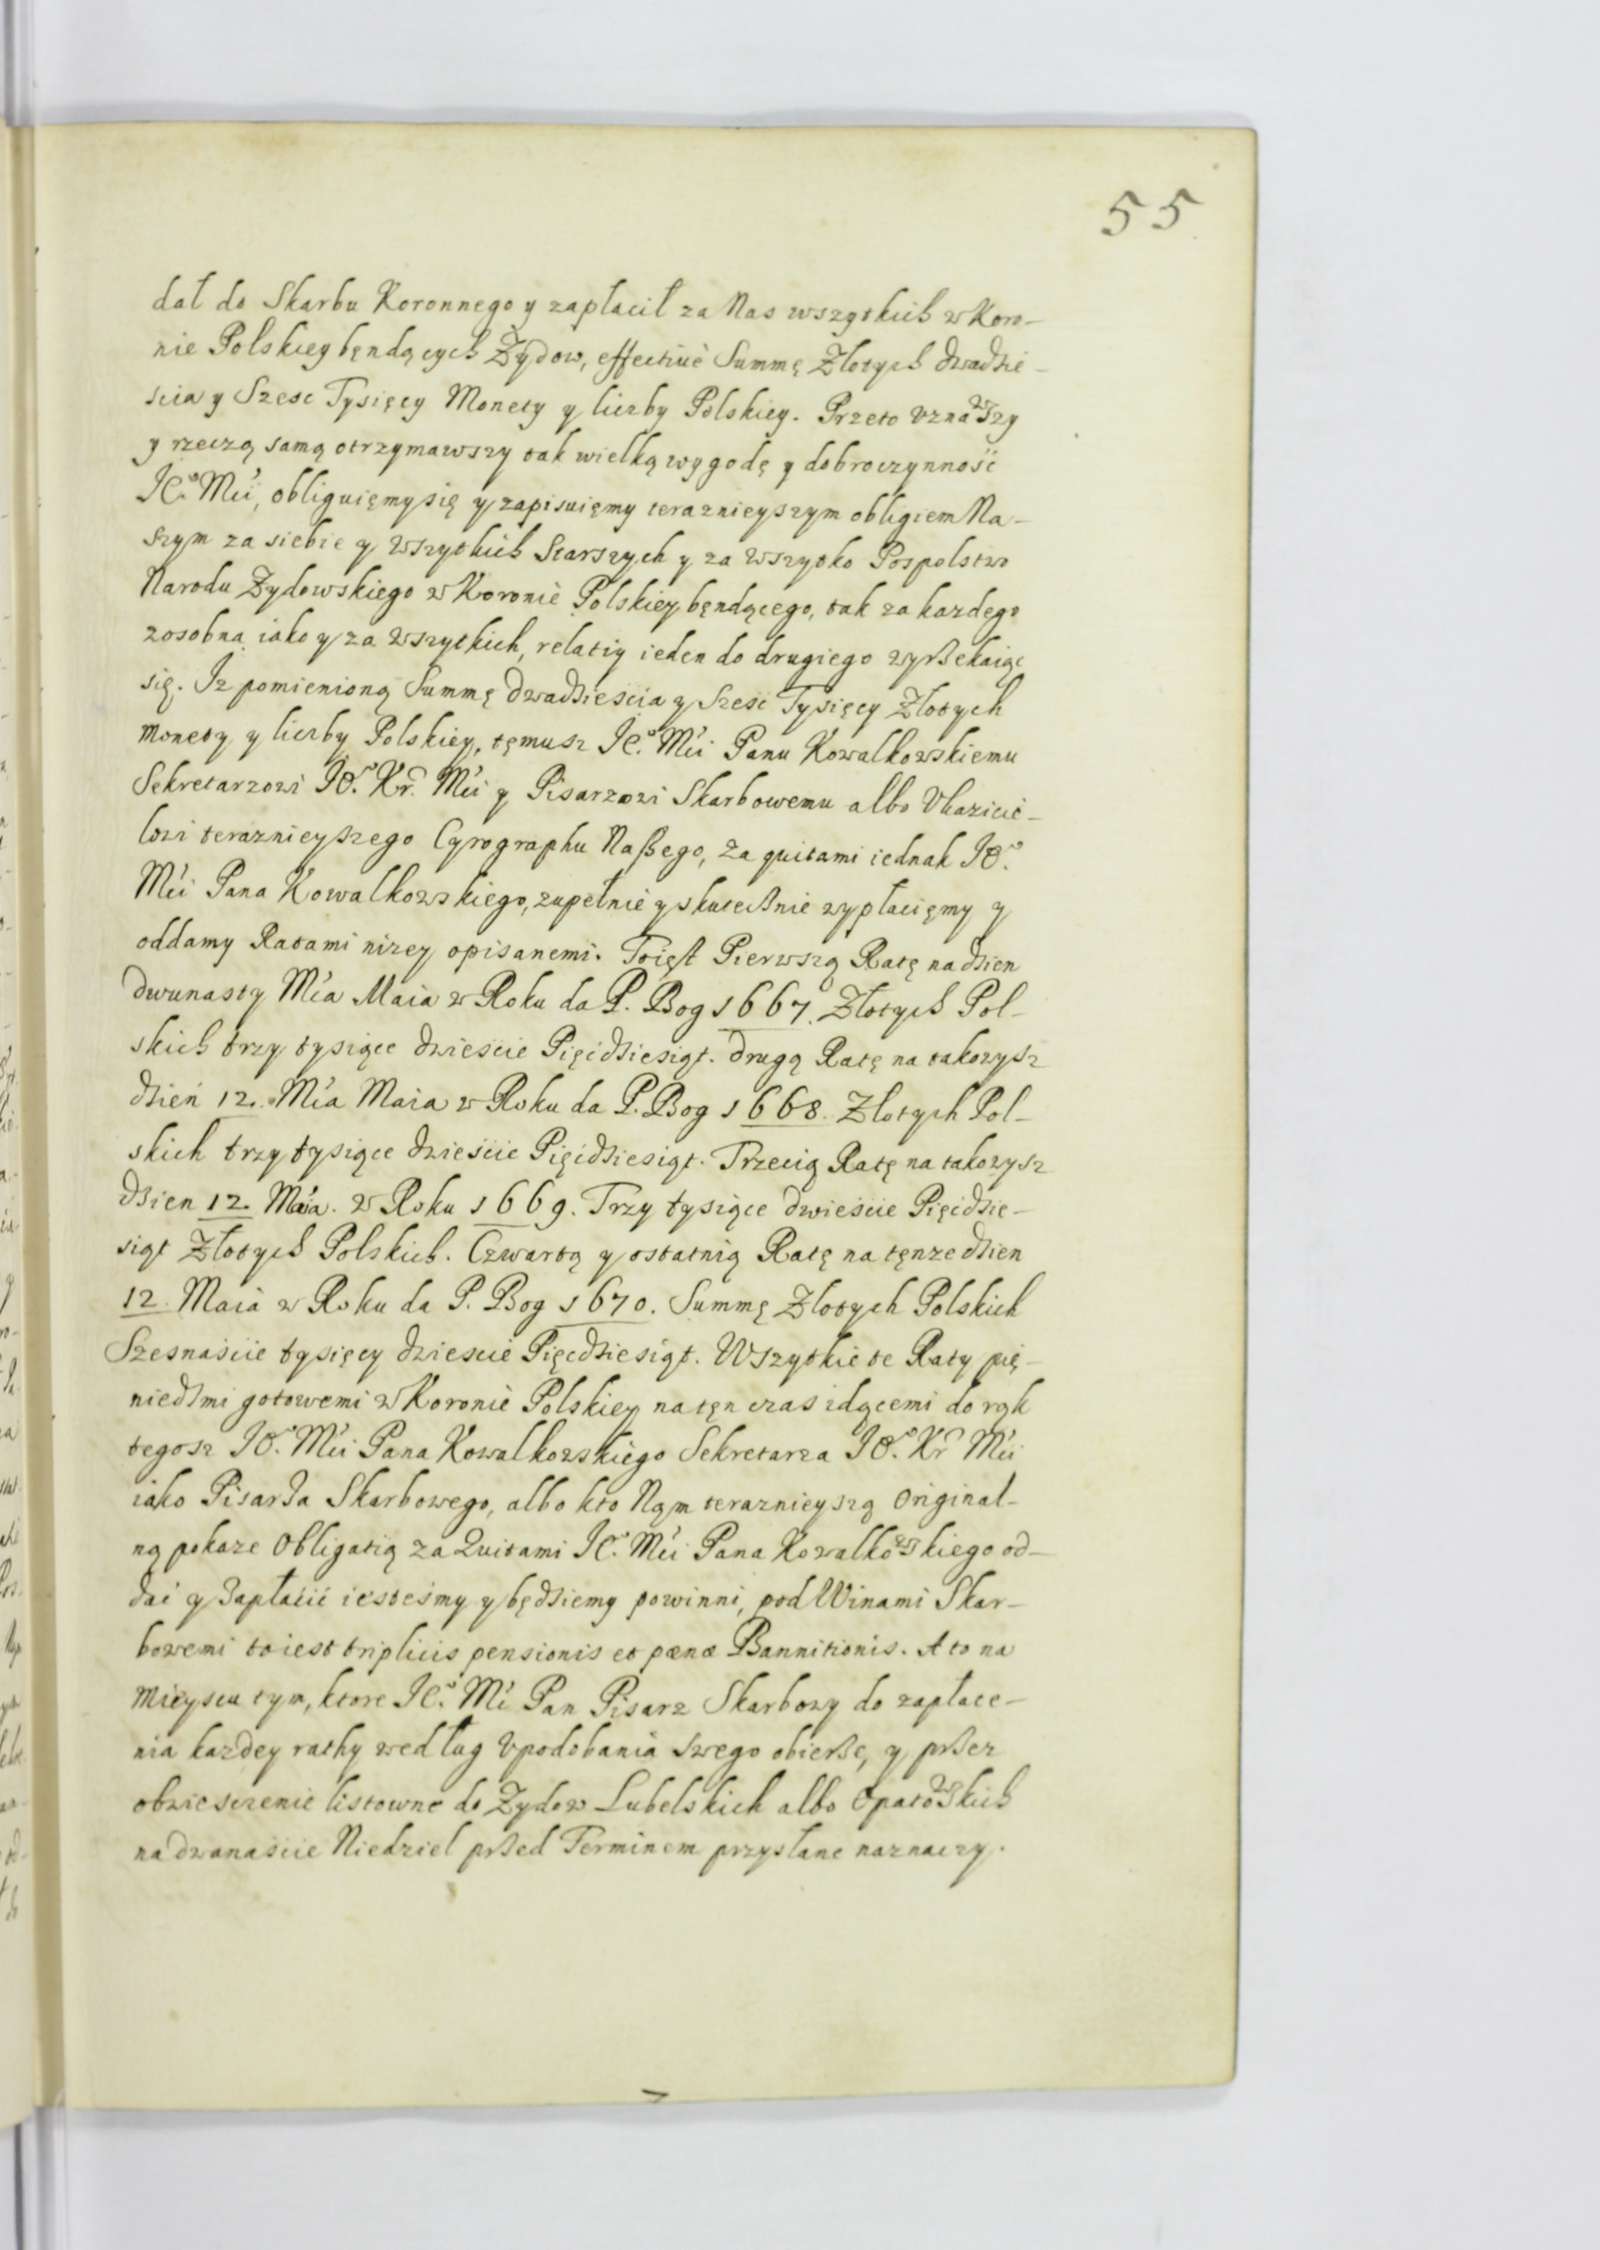 55
dał do Skarbu Koronnego y zapłacił za Nas wszytkich w Koro-
nie Polskiey bęndących Żydow, effectiuè Summę Złotych dwadzie-
scia y Szesc Tysięcy Monety y liczby Polskiey. Przeto vznawszy
y rzeczą samą otrzymawszy tak wielką wygodę y dobroczynność
JE.º Mći, obliguięmy się y zapisuięmy teraznieyszym obligiem Na-
szym za siebie y wszytkich Starszych y za wszytko Pospolstwo
Narodu Zydowskiego w Koronie Polskiey bęndącego, tak za kazdego
zosobna iako y za wszytkich, relatią ieden do drugiego zyrzekaiąc
się. Iz pomienioną Summę dwadzieścia y Szesć Tysięcy Złotych
monety y liczby Polskiey, tęmusz JE.º Mći Panu Kowalkowskiemu
Sekretarzowi JO.º Kr. Mći y Pisarzowi Skarbowemu albo Vkazicie-
lowi teraznieyszego Cyrographu Naßego, za quitami iednak JO.º
Mći Pana Kowalkowskiego, zupełnie y skutecznie wypłacięmy y
oddamy Ratami nizey opisanemi. Toięst Pierwszą Ratę na dzien
dwunasty Mća Maia w Roku da P. Bog 1667. Złotych Pol-
skich trzy tysiące dwiescie Pięćdziesiąt. drugą Ratę na takowysz
dzień 12. Mća Maia w Roku da P. Bog 1668. Złotych Pol-
skich trzy tysiące dwieście Pięćdziesiąt. Trzecią Ratę na takowysz
dzien 12. Maia. w Roku 1669. Trzy tysiące dwieście Pięćdzie-
siąt Złotych Polskich. Czwartą y ostatnią Ratę na tęnze dzien
12. Maia w Roku da P. Bog 1670. Summę Złotych Polskich
Szesnaście tysięcy dwiescie Pięcdziesiąt. Wszytkie te Raty pię-
niedzmi gotowemi w Koronie Polskiey na tęn czas idącemi do rąk
tegosz JO.º Mći Pana Kowalkowskiego Sekretarza JO.º Kr. Mći
iako Pisarza Skarbowego, albo kto Nąm teraznieyszą Original-
ną pokaze Obligatią za Quitami JE.º Mći Pana Kowalkowskiego od-
dać y Zapłacić iesteśmy y będziemy powinni, pod Winami Skar-
bowemi to iest triplicis pensionis et pœnœ Bannitionis. A to na
Mieyscu tym, ktore JE.º Mć Pan Pisarz Skarbowy do zapłace-
nia kazdey rathy według Vpodobania swego obierze, y przez
obwieszczenie listowne do Zydow Lubelskich albo Opatowskich
na dwanaście Niedziel przed Terminem przysłane naznaczy.